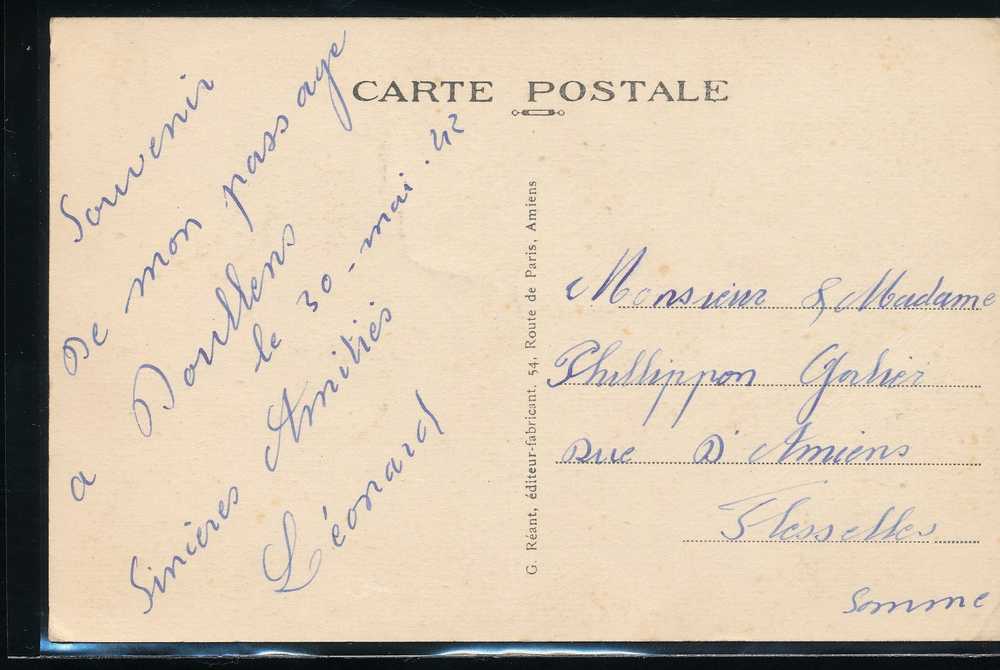 CARTE POSTALE
Souvenir
De mon passage
a Doullens
le 30 - mai . 42
Sinières Amitiés
Léonard
G. Réant, éditeur-fabricant, 54, Route de Paris, Amiens
Monsieur & Madame
Phillippon
Rue D'Amiens
Flesselles
Somme